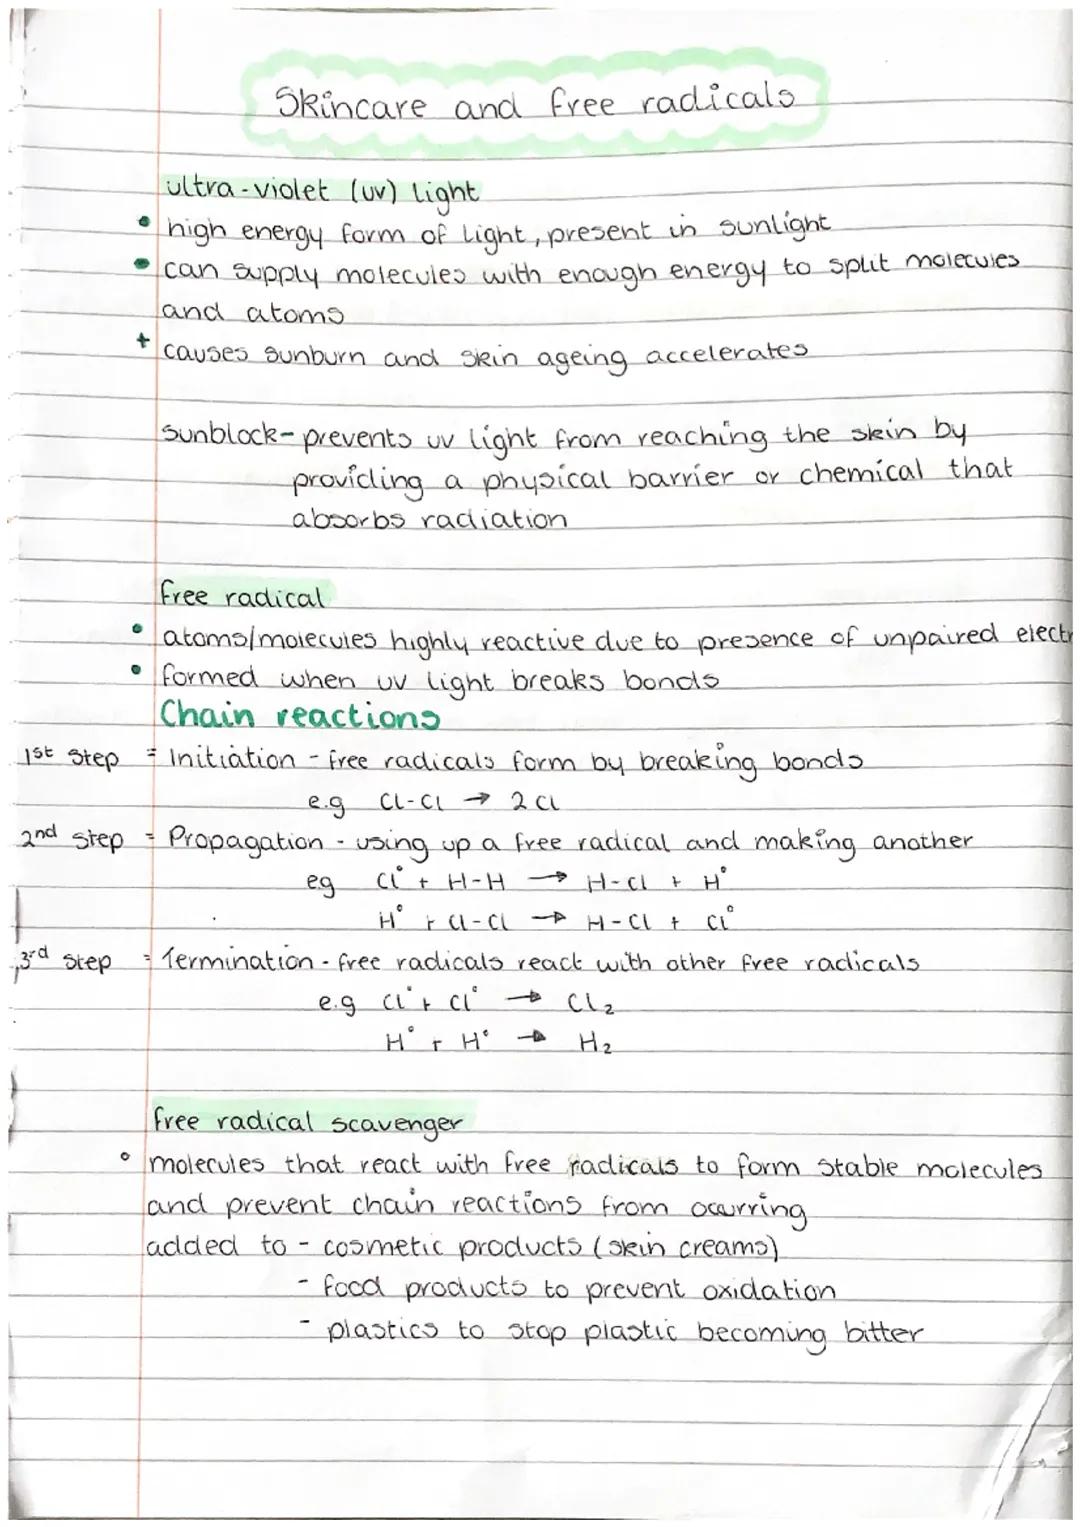 Skincare and free radicals
ultra-violet (uv) light
• high energy form of light, present in sunlight
• can supply molecules with enough energy to split molecules
and atoms
+ causes sunburn and skin ageing accelerates
sunblock- prevents uv light from reaching the skin by
providing a physical barrier or chemical that
absorbs radiation
free radical
• atoms/molecules highly reactive due to presence of unpaired electr
• formed when uv light breaks bonds
Chain reactions
1st step = Initiation - free radicals form by breaking bonds
e.g Cl-Cl → 2 Cl
2nd step = Propagation - using up a free radical and making another
eg Cl° + H-H → H-Cl + H°
H° + Cl-Cl → H-Cl + Cl°
3rd step = Termination - free radicals react with other free radicals
e.g Cl° + Cl° → Cl₂
H° + H° → H₂
free radical scavenger
° molecules that react with free radicals to form stable molecules
and prevent chain reactions from ocurring
added to - cosmetic products (skin creams)
- food products to prevent oxidation
- plastics to stop plastic becoming bitter